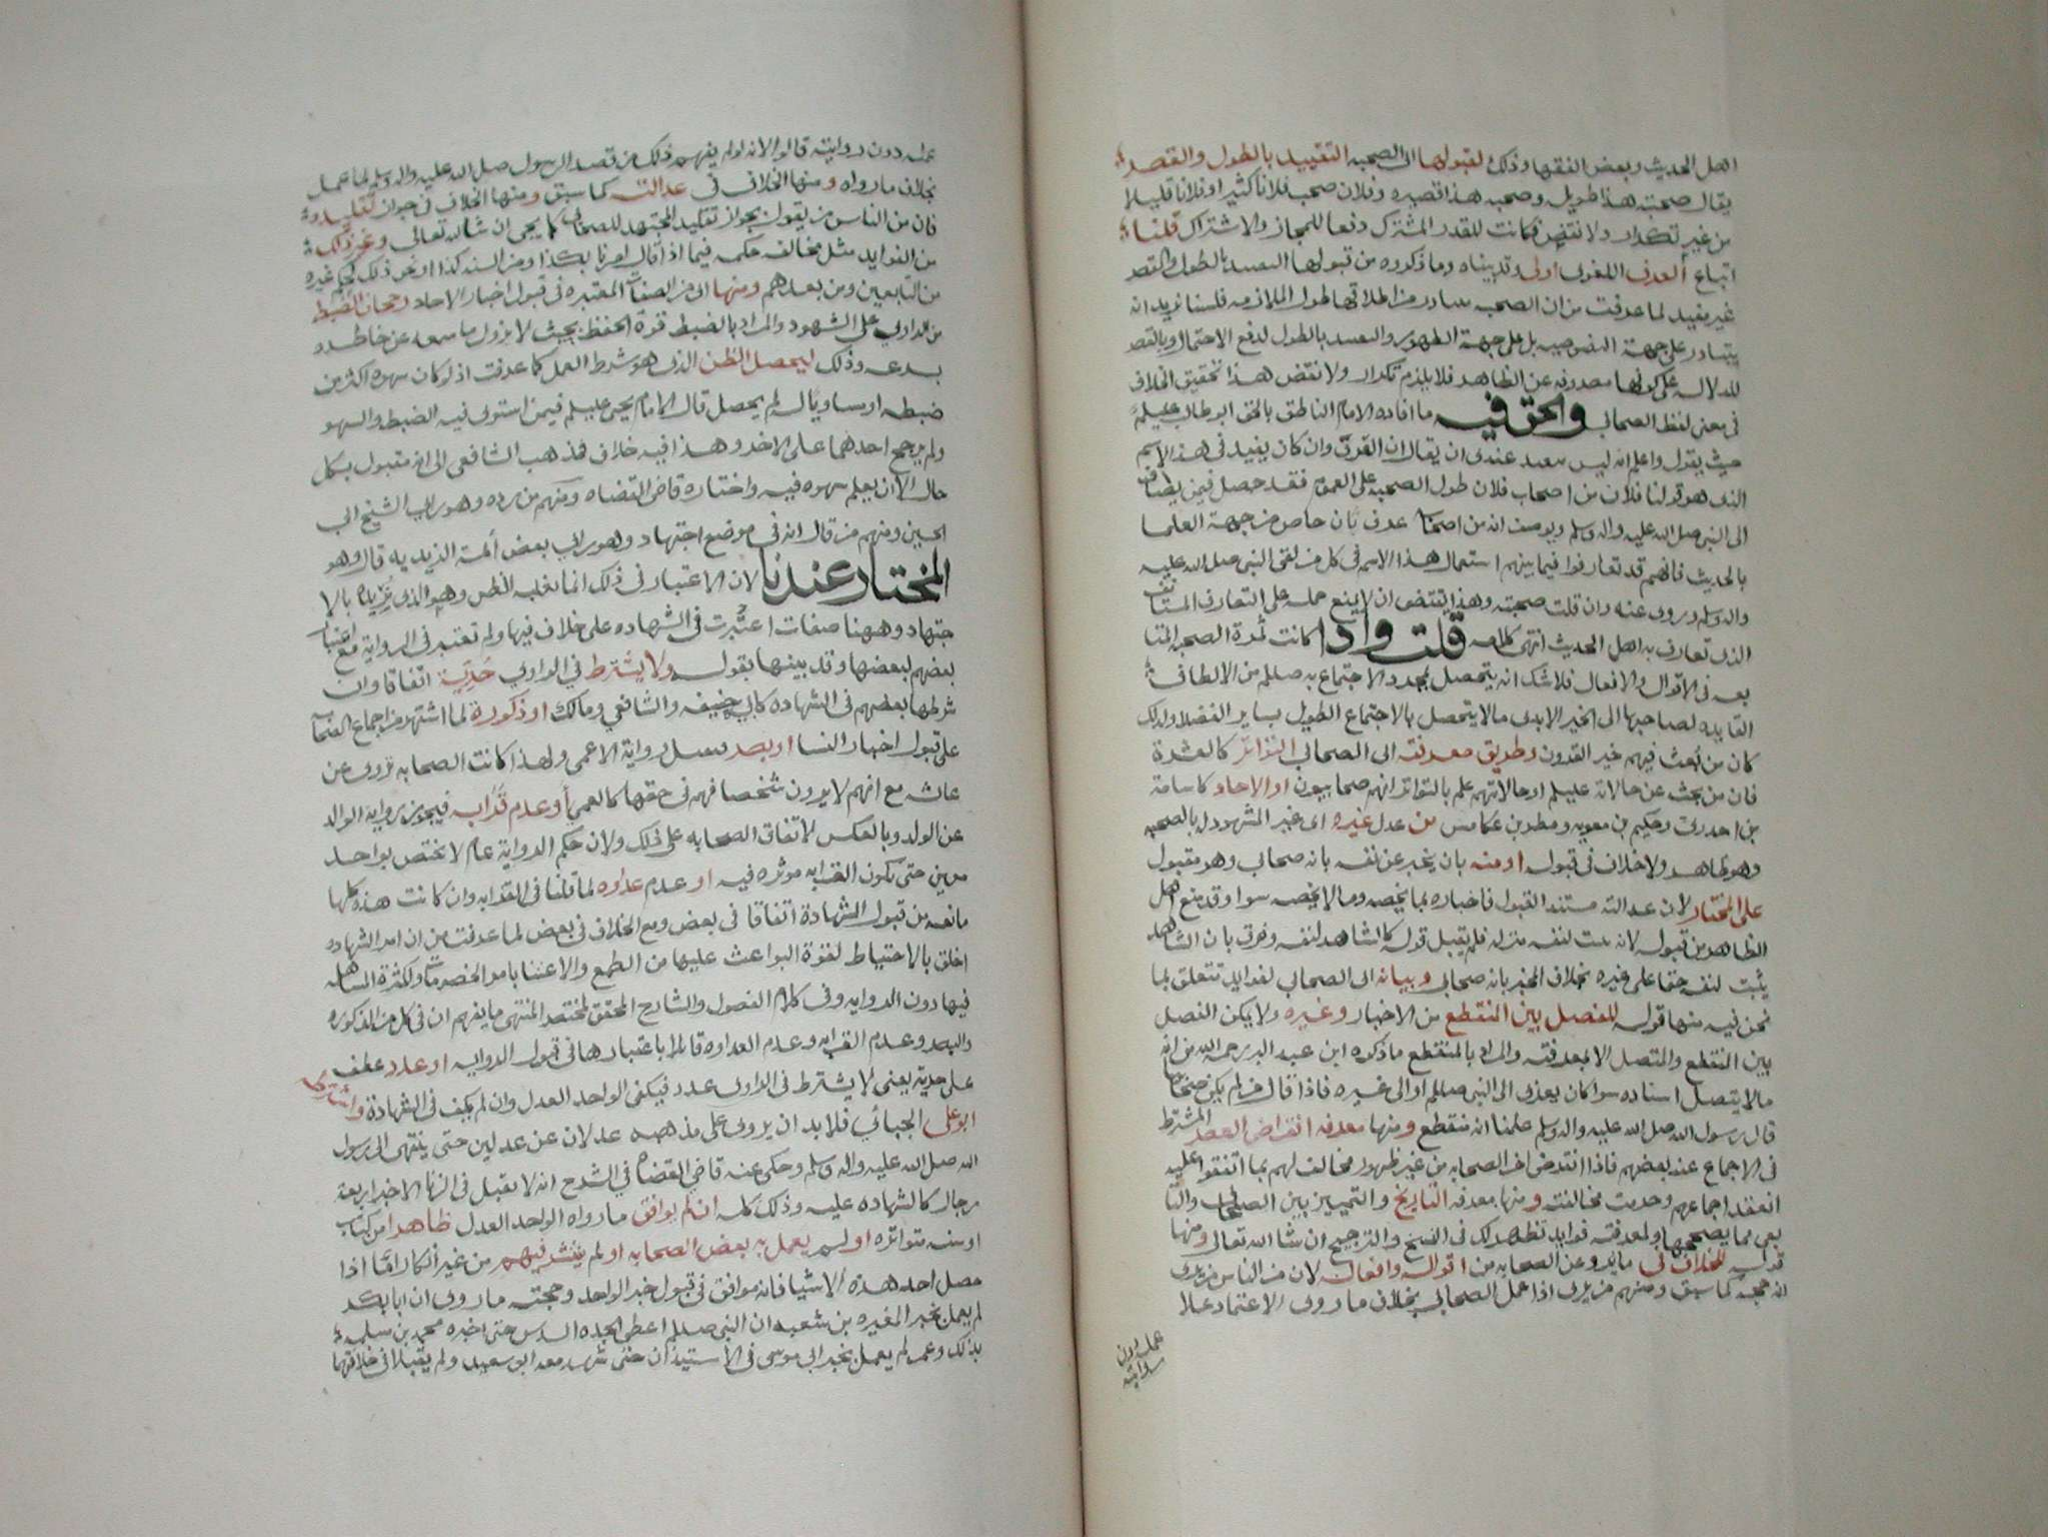 اهل الحديث وبعض الفقها وذلك لقبولها اى الصحبه التقييد بالطول والقصر
يقال صحبته هذا طويله وصحبه هذا قصيره وفلان صحب فلانا كثيرا وفلانا قليلا
من غير تكرار ولا نقض فكانت للقدر المشترك دفعا للمجاز والاشتراك قلنا
اتباع العرف اللغوى اولى وقد بيناه وما ذكروه من قبولها بالطول والقصر
غير مفيد لما عرفت من ان الصحبه من اطلاقها طول الملازمه فلسنا نريد انه
يتبادر على جهة النصوصيه بل على جهة الظهور بالطول لدفع الاحتمال وبالقصر
للدلاله على كونها مصروفه عن الظاهر فلا يلزم تكرار ولا نقض هذا تحقيق الخلاف
فى معنى لفظ الصحابي والحق فيه ما افاده الامام الناطق بالحق ابو طالب عليلم
حيث يقول واعلم انه ليس ببعيد عندى ان يقال ان العرف وان كان يفيد فى هذا الاسم
الذى هو قولنا فلان من اصحاب فلان طول الصحبه على العموم فقد حصل فيمن يضاف
الى النبى صلى الله عليه واله وسلم ويوصف انه من اصحابه عرف ثان خاص من جهة العلما
بالحديث فانهم قد تعارفوا فيما بينهم استعمال هذا الاسم فى كل من لقى النبى صلى الله عليه
واله وسلم وروى عنه وان قلت صحبته وهذا يقتضى ان لا يمنع حمله على التعارف المستانف
الذى تعارف به اهل الحديث انتهى كلامه قلت واذا كانت ثمرة الصحبه المتا
بعه فى الاقوال والافعال فلا شك انه يتحصل بمجرد الاجتماع به صللم من الالطاف
القايده لصاحبها الى الخير الابدى مالا يتحصل بالاجتماع الطويل بساير الفضلا ولذلك
كان من بعث فيهم خير القرون وطريق معرفته اى الصحابي التواتر كالعشرة
فان من بحث عن حالاته عليلم او حالاتهم علم بالتواتر انهم صحابيون او الاحاد كاسامة
بن اخدرى وحكيم بن معويه ومطر بن عكامس من عدل غيره اى غير المشهود له بالصحبه
وهو ظاهر ولا خلاف فى قبوله او منه بان يخبر عن نفسه بانه صحابي وهو مقبول
على المختار لان عدالته مستند القبول فاخباره بما يخصه وما لا يخصه سوا وقد منع اهل
الظاهر من قبوله لانه لنفسه منزله فلم يقبل قوله كالشاهد لنفسه وفرق بان الشاهد
يثبت لنفسه حقا على غيره بخلاف المخبر بانه صحابي وبيانه اى الصحابي لفوايد تتعلق بما
نحن فيه منها قوله للفصل بين المنقطع من الاخبار وغيره ولا يمكن الفصل
بين المنقطع والمتصل الا بمعرفته والمراد بالمنقطع ما ذكره ابن عبد البر رحمه الله من انه
مالا يتصل اسناده سوا كان يعزى الى النبى صللم او الى غيره فاذا قال من لم يكن صحابيا
قال رسول الله صلى الله عليه واله وسلم علمنا انه منقطع ومنها معرفه انقراض العصر المشترط
فى الاجماع عند بعضهم فاذا انقرض اخر الصحابه من غير ظهور مخالف لهم بما اتفقوا عليه
انعقد اجماعهم وحرمت مخالفته ومنها معرفه التاريخ والتمييز بين الصحابى والتا
بعى مما يصححها ولمعرفته فوايد تظهر لك فى النسخ والترجيح ان شا الله تعالى ومنها
قوله للخلاف فى ما يرو عن الصحابه من اقواله وافعاله لان من الناس من يرى
انه حجه كما سبق ومنهم من يرى اذا عمل الصحابي بخلاف ما روى الاعتماد على
عمله دون
روايته
عمله دون روايته قالوا لانه لو لم يفهم ذلك من قصد الرسول صلى الله عليه واله وسلم لما عمل
بخلاف ما رواه ومنها الخلاف فى عدالته كما سبق ومنها الخلاف فى جواز تقليده
فان من الناس من يقول بجواز تقليد المجتهد للصحابى كما يجى ان شا الله تعالى وغير ذلك
من الفوايد مثل مخالفه حكمه فيما اذا قال امرنا بكذا ومن السنه كذا او نحو ذلك لحكم غيره
من التابعين ومن بعدهم ومنها اى من الصفات المعتبره فى قبول اخبار الاحاد رجحان الضبط
من الراوى على السهو والمراد بالضبط قوة الحفظ بحيث لا يزول ما سمعه عن خاطره
بسرعه وذلك ليحصل الظن الذى هو شرط العمل كما عرفت اذ لو كان سهوه اكثر من
ضبطه او مساويا له لم يحصل قال الامام يحيى عليلم فيمن استوى فيه الضبط والسهو
ولم يرجح احدهما على الاخر وهذا فيه خلاف فذهب الشافعى الى انه مقبول بكل
حال الا ان يعلم سهوه فيه واختاره قاضى القضاه ومنهم من رده وهو راى الشيخ ابى
الحسين ومنهم من قال انه فى موضع اجتهاد وهو راى بعض ائمة الزيديه قال وهو
المختار عندنا لان الاعتبار فى ذلك انما بغلبه الظن وهو الذى نريده بالا
جتهاد وههنا صفات اعتبرت فى الشهاده على خلاف فيها ولم تعتبر فى الرواية مع اعتبار
بعضهم لبعضها وقد بينها بقوله ولا يشترط فى الراوى حرية اتفاقا وان
شرطها بعضهم فى الشهادة كابى حنيفه والشافعي ومالك او ذكورة لما اشتهر من اجماع الصحابه
على قبول اخبار النسا او بصر رواية الاعمى ولهذا كانت الصحابه تروى عن
عائشه مع انهم لا يرون شخصا فهم فى حقها كالعمي او عدم قرابه فيجوز روايه الوالد
عن الولد وبالعكس لاتفاق الصحابه على ذلك ولان حكم الرواية عام لا يختص بواحد
معين حتى تكون القرابه موثره فيه او عدم عداوه لما قلنا فى القرابه وان كانت هذه كلها
مانعه من قبول الشهادة اتفاقا فى بعض ومع الخلاف فى بعض لما عرفت من ان امر الشهاده
اخلق بالاحتياط لقوة البواعث عليها من الطمع والاعتنا بامر الخصومات ولكثرة التساهل
فيها دون الروايه وفى كلام الفصول والشارح المحقق لمختصر المنتهى ما يفهم ان فى كل من الذكوره
والبصر وعدم القرابه وعدم العداوه قائلا باعتبارها فى قبول الروايه او عدد عطف
على حرية يعنى لا يشترط فى الراوى عدد فيكفى الواحد العدل وان لم يكف فى الشهادة واشترط
ابو على الجبائي فلا بد ان يروى على مذهبه عدلان عن عدلين حتى ينتهى الى رسول
الله صلى الله عليه واله وسلم وحكى عنه قاضى القضاه فى الشرح انه لا يقبل فى الزنا الا خبر اربعة
رجال كالشهاده عليه وذلك كله ان لم يوافق ما رواه الواحد العدل ظاهرا من كتاب
او سنه متواتره او لم يعمل به بعض الصحابه او لم ينتشر فيهم من غير انكار اما اذا
حصل احد هذه الاشيا فانه موافق فى قبول خبر الواحد وحجته ما روى ان ابا بكر
لم يعمل بخبر المغيره بن شعبه ان النبى صللم اعطى الجده السدس حتى اخبره محمد بن سلمه
بذلك وعمر لم يعمل بخبر ابى موسى فى الاستيذان حتى شهد معه ابو سعيد ولم يقبلا فى خلافتها